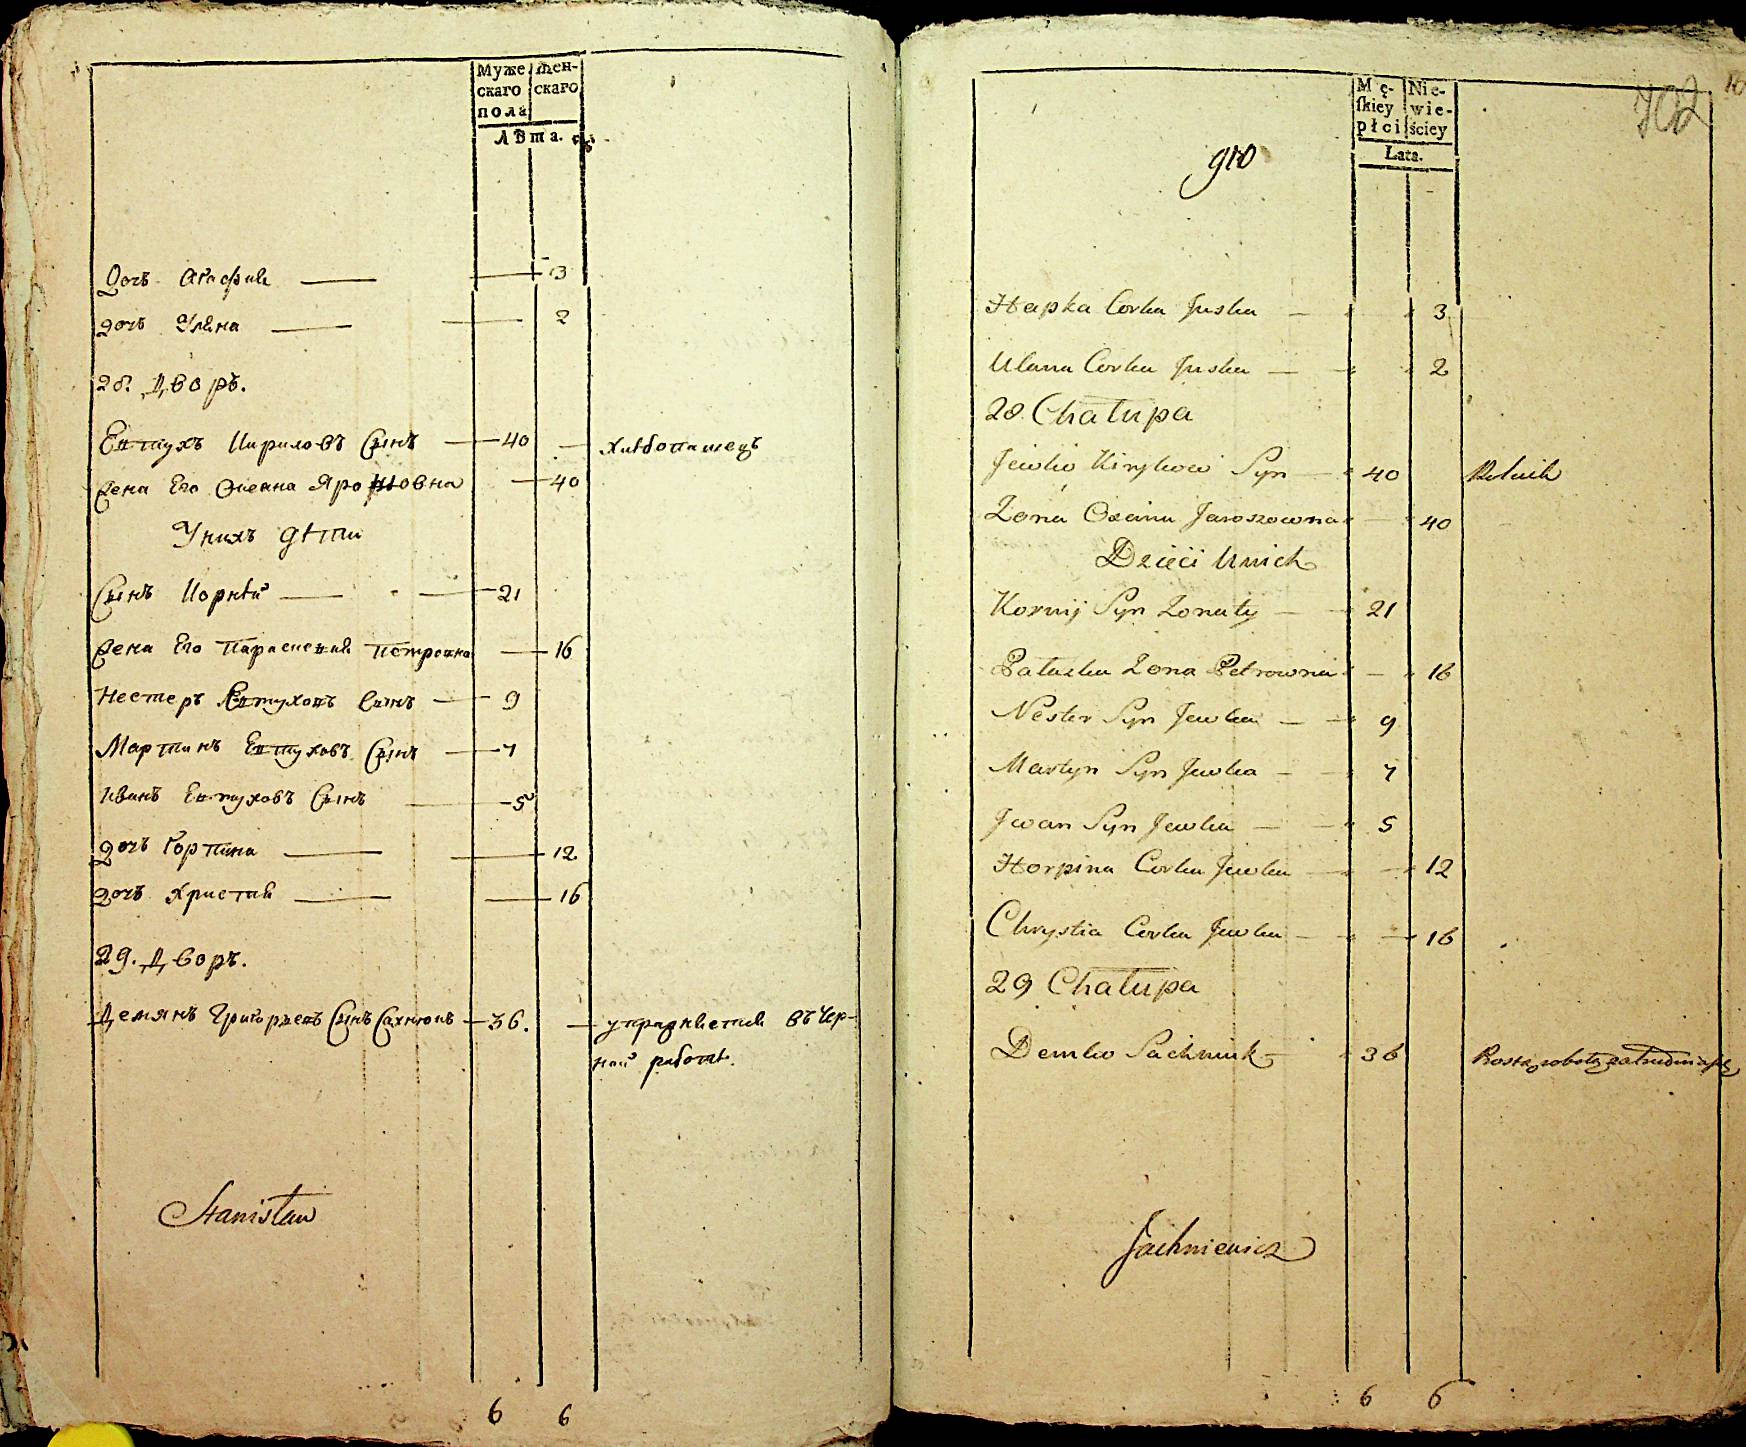 Муже скаго пола
жен- скаго
Лѣта.
Дочь Агафия 3
дочь Уляна 2
28. Дворъ.
Евтухъ Кириловъ Сынъ 40 хлѣбопашецъ
Жена Его Оксана Ярошовна 40
У нихъ дѣти
Сынъ Корнѣй 21
Жена Его Параскевия Петровна 16
Нестеръ Евтуховъ сынъ 9
Мартинъ Евтуховъ Сынъ 7
Иванъ Евтуховъ Сынъ 5
дочь Горпина 12
дочь Христия 16
29. Дворъ.
Демянъ Григорьевъ Сынъ Сахнюкъ 36. упражняется въ Чер-
ной работѣ.
Stanisław
6 6
Mę- skiey płci
Nie- wie- ściey
Lata.
702
910
Hapka Corka Juska 3
Ulana Corka Juska 2
28 Chałupa
Jewko Kiryłow Syn 40 Rolnik
Zona Oxana Jaroszowna 40
Dzieci U nich
Kornij Syn Zonaty 21
Paluszka Zona Petrowna 16
Nester Syn Jewka 9
Martyn Syn Jewka 7
Jwan Syn Jewka 5
Horpina Corka Jewka 12
Chrystia Corka Jewka 16
29 Chałupa
Demko Sachniuk 36 Prostą robotą zatrudnia się
Jachniewicz
6 6